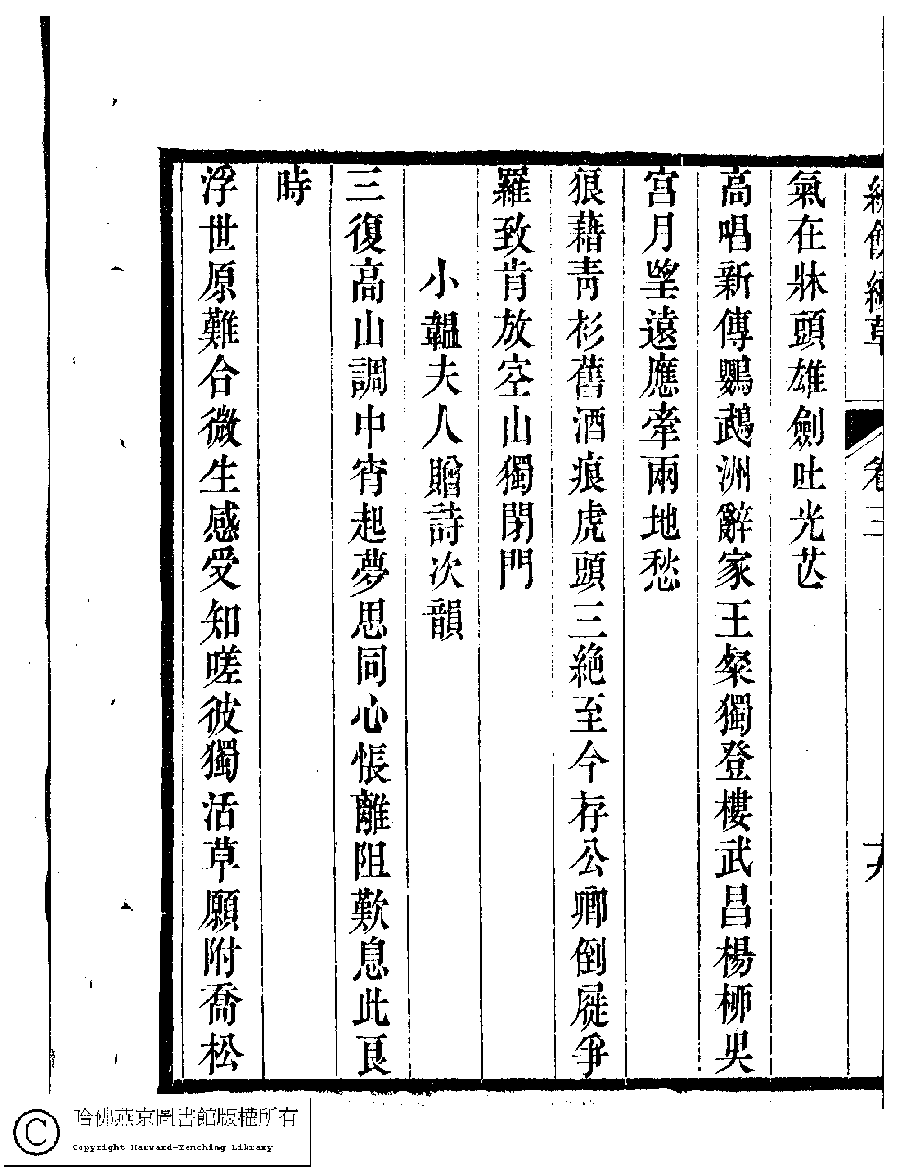 繡餘續草 卷三
氣在牀頭雄劍吐光芒
高唱新傳鸚鵡洲辭家王粲獨登樓武昌楊柳吳
宮月望遠應牽兩地愁
狼藉靑衫舊酒痕虎頭三絕至今存公卿倒屣爭
羅致肯放空山獨閉門
小韞夫人贈詩次韻
三復高山調中宵起夢思同心悵離阻歎息此良
時
浮世原難合微生感受知嗟彼獨活草願附喬松
哈佛燕京圖書館版權所有
Copyright Harvard-Yenching Library